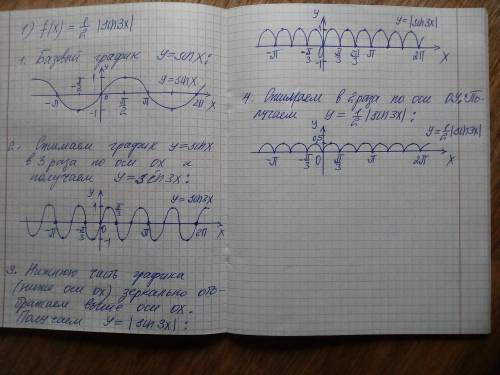 1) f(x) = 1/2 |sin3x|
1. Базовый график y=sinx:
y
y=sinx
1
-π -π/2 0 π/2 π 2π x
-1
2. Сжимаем график y=sinx
в 3 раза по оси ox и
получаем y=sin3x:
y
y=sin3x
1 π/3
-π -π/3 0 π 2π x
-1
3. Нижнюю часть графика
(ниже оси ox) зеркально ото-
бражаем выше оси ox.
Получаем y=|sin3x|:
y
y=|sin3x|
1
-π -π/3 0 π/3 π 2π x
-1
4. Сжимаем в 2 раза по оси oy. По-
лучаем y = 1/2 |sin3x|:
y
y=1/2|sin3x|
0,5
-π -π/3 0 π/3 π 2π x